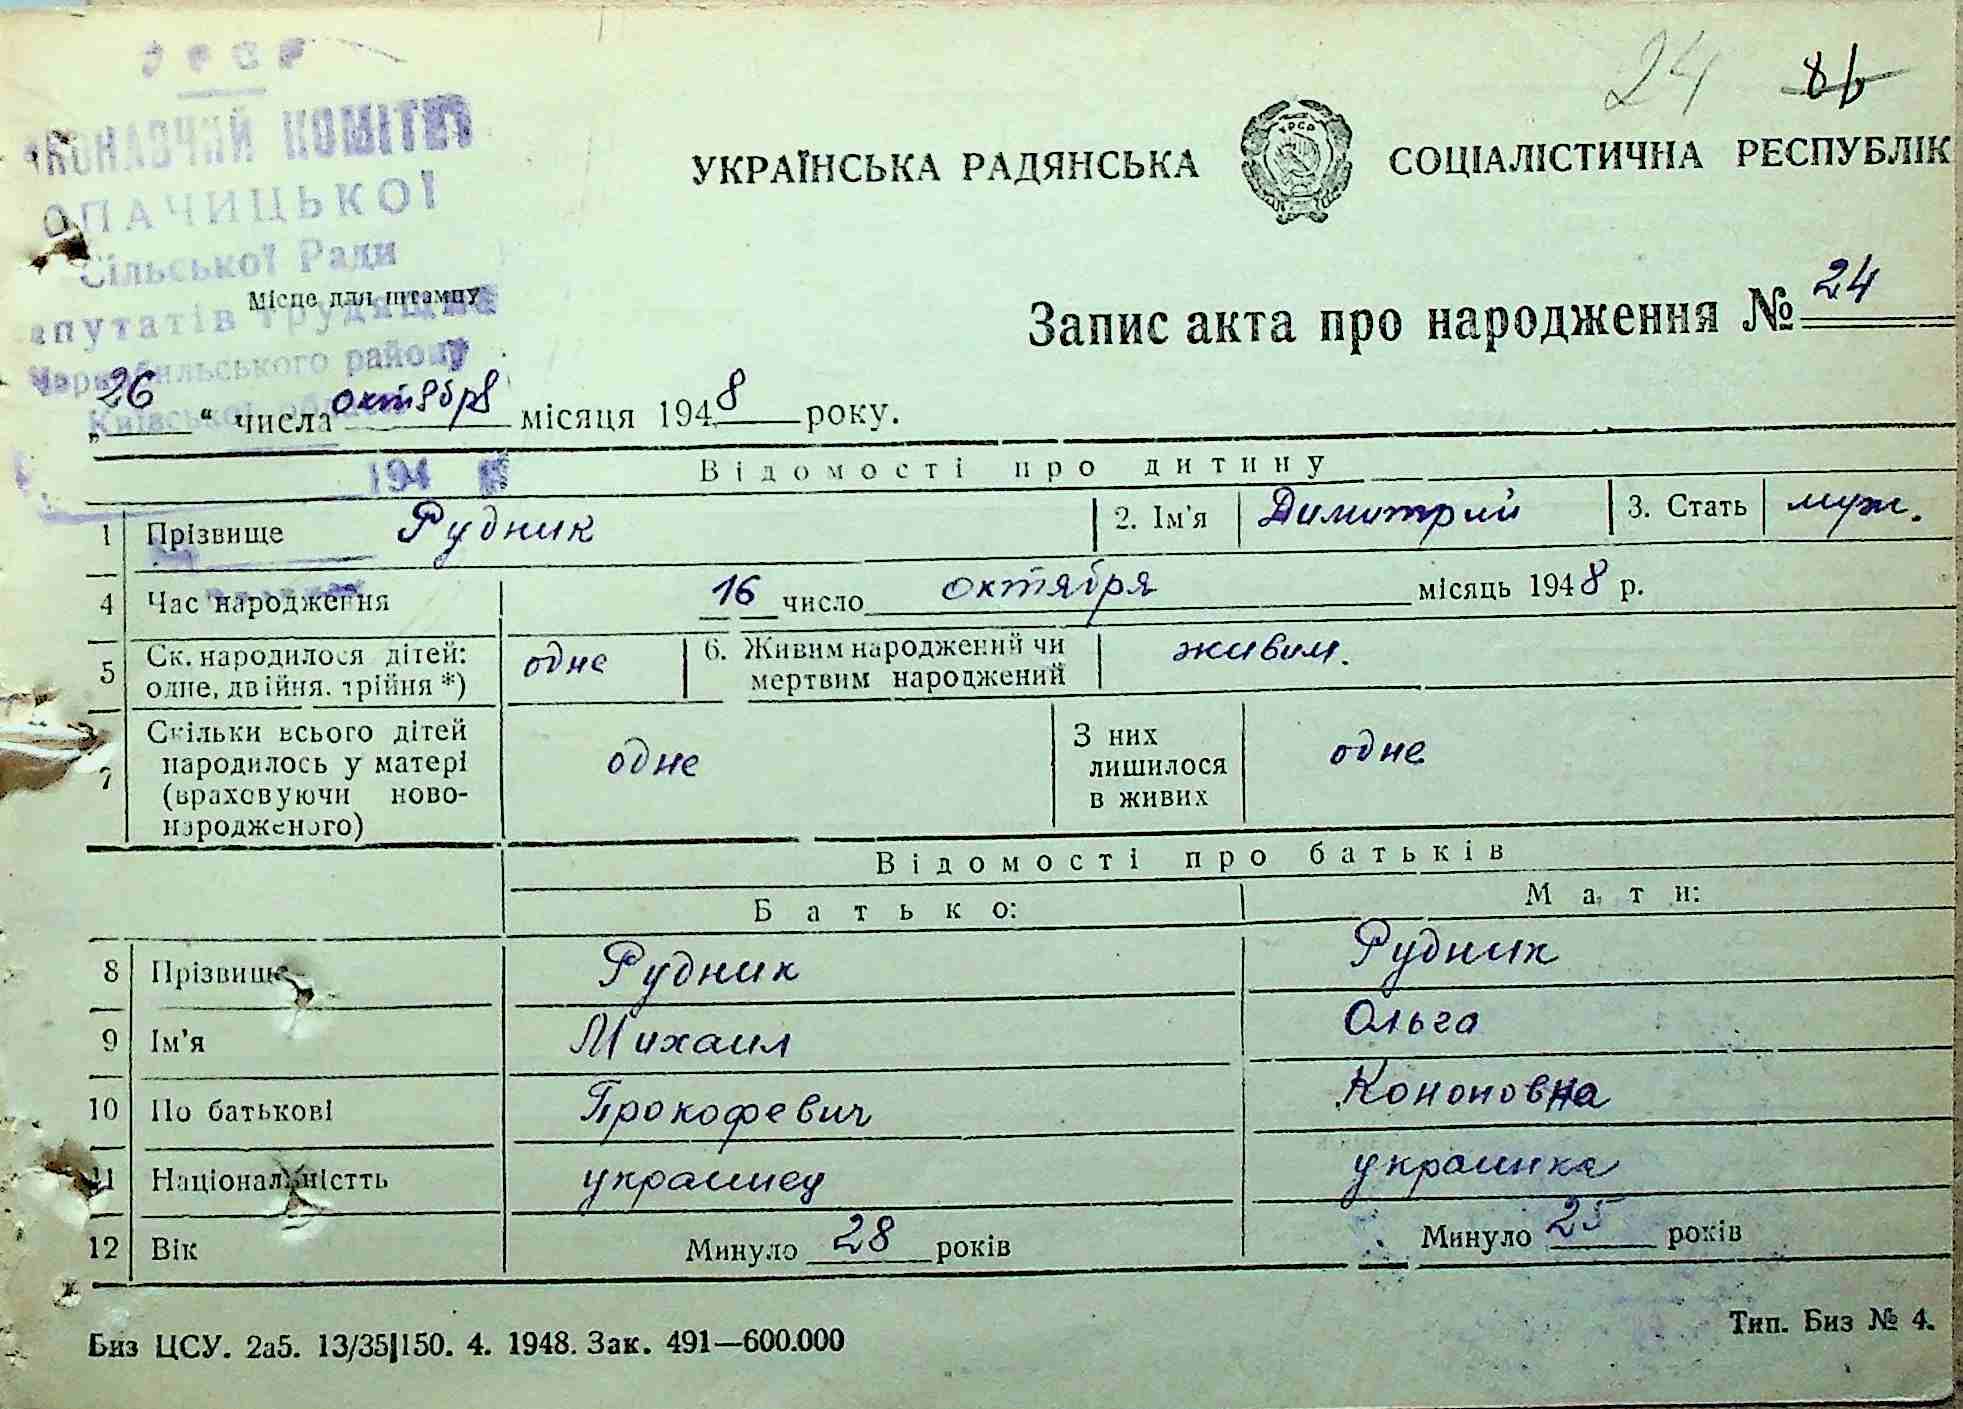 УРСР
ВИКОНАВЧИЙ КОМІТЕТ
ОПАЧИЦЬКОЇ
Сільської Ради
депутатів трудящих
Чорнобильського району
Київської області
194
24 86
УКРАЇНСЬКА РАДЯНСЬКА СОЦІАЛІСТИЧНА РЕСПУБЛІК
Місце для штампу
Запис акта про народження № 24
„26“ числа октября місяця 1948 року.
Відомості про дитину
1 Прізвище Рудник 2. Ім'я Димитрий 3. Стать муж.
4 Час народження 16 число октября місяць 1948 р.
5 Ск. народилося дітей: одне, двійня, трійня *) одне 6. Живим народжений чи мертвим народжений живим.
7 Скільки всього дітей народилось у матері (враховуючи ново-народженого) одне З них лишилося в живих одне
Відомості про батьків
Батько: Мати:
8 Прізвище Рудник Рудник
9 Ім'я Михаил Ольга
10 По батькові Прокофевич Кононовна
11 Національністть украинец украинка
12 Вік Минуло 28 років Минуло 25 років
Биз ЦСУ. 2а5. 13/35|150. 4. 1948. Зак. 491—600.000 Тип. Биз № 4.